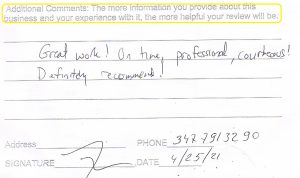 Additional Comments: The more information you provide about this
business and your experience with it, the more helpful your review will be.
Great work! On time, professional, courteous!
Definitely recommend!
Address PHONE 347 791 32 90
SIGNATURE DATE 4/25/21